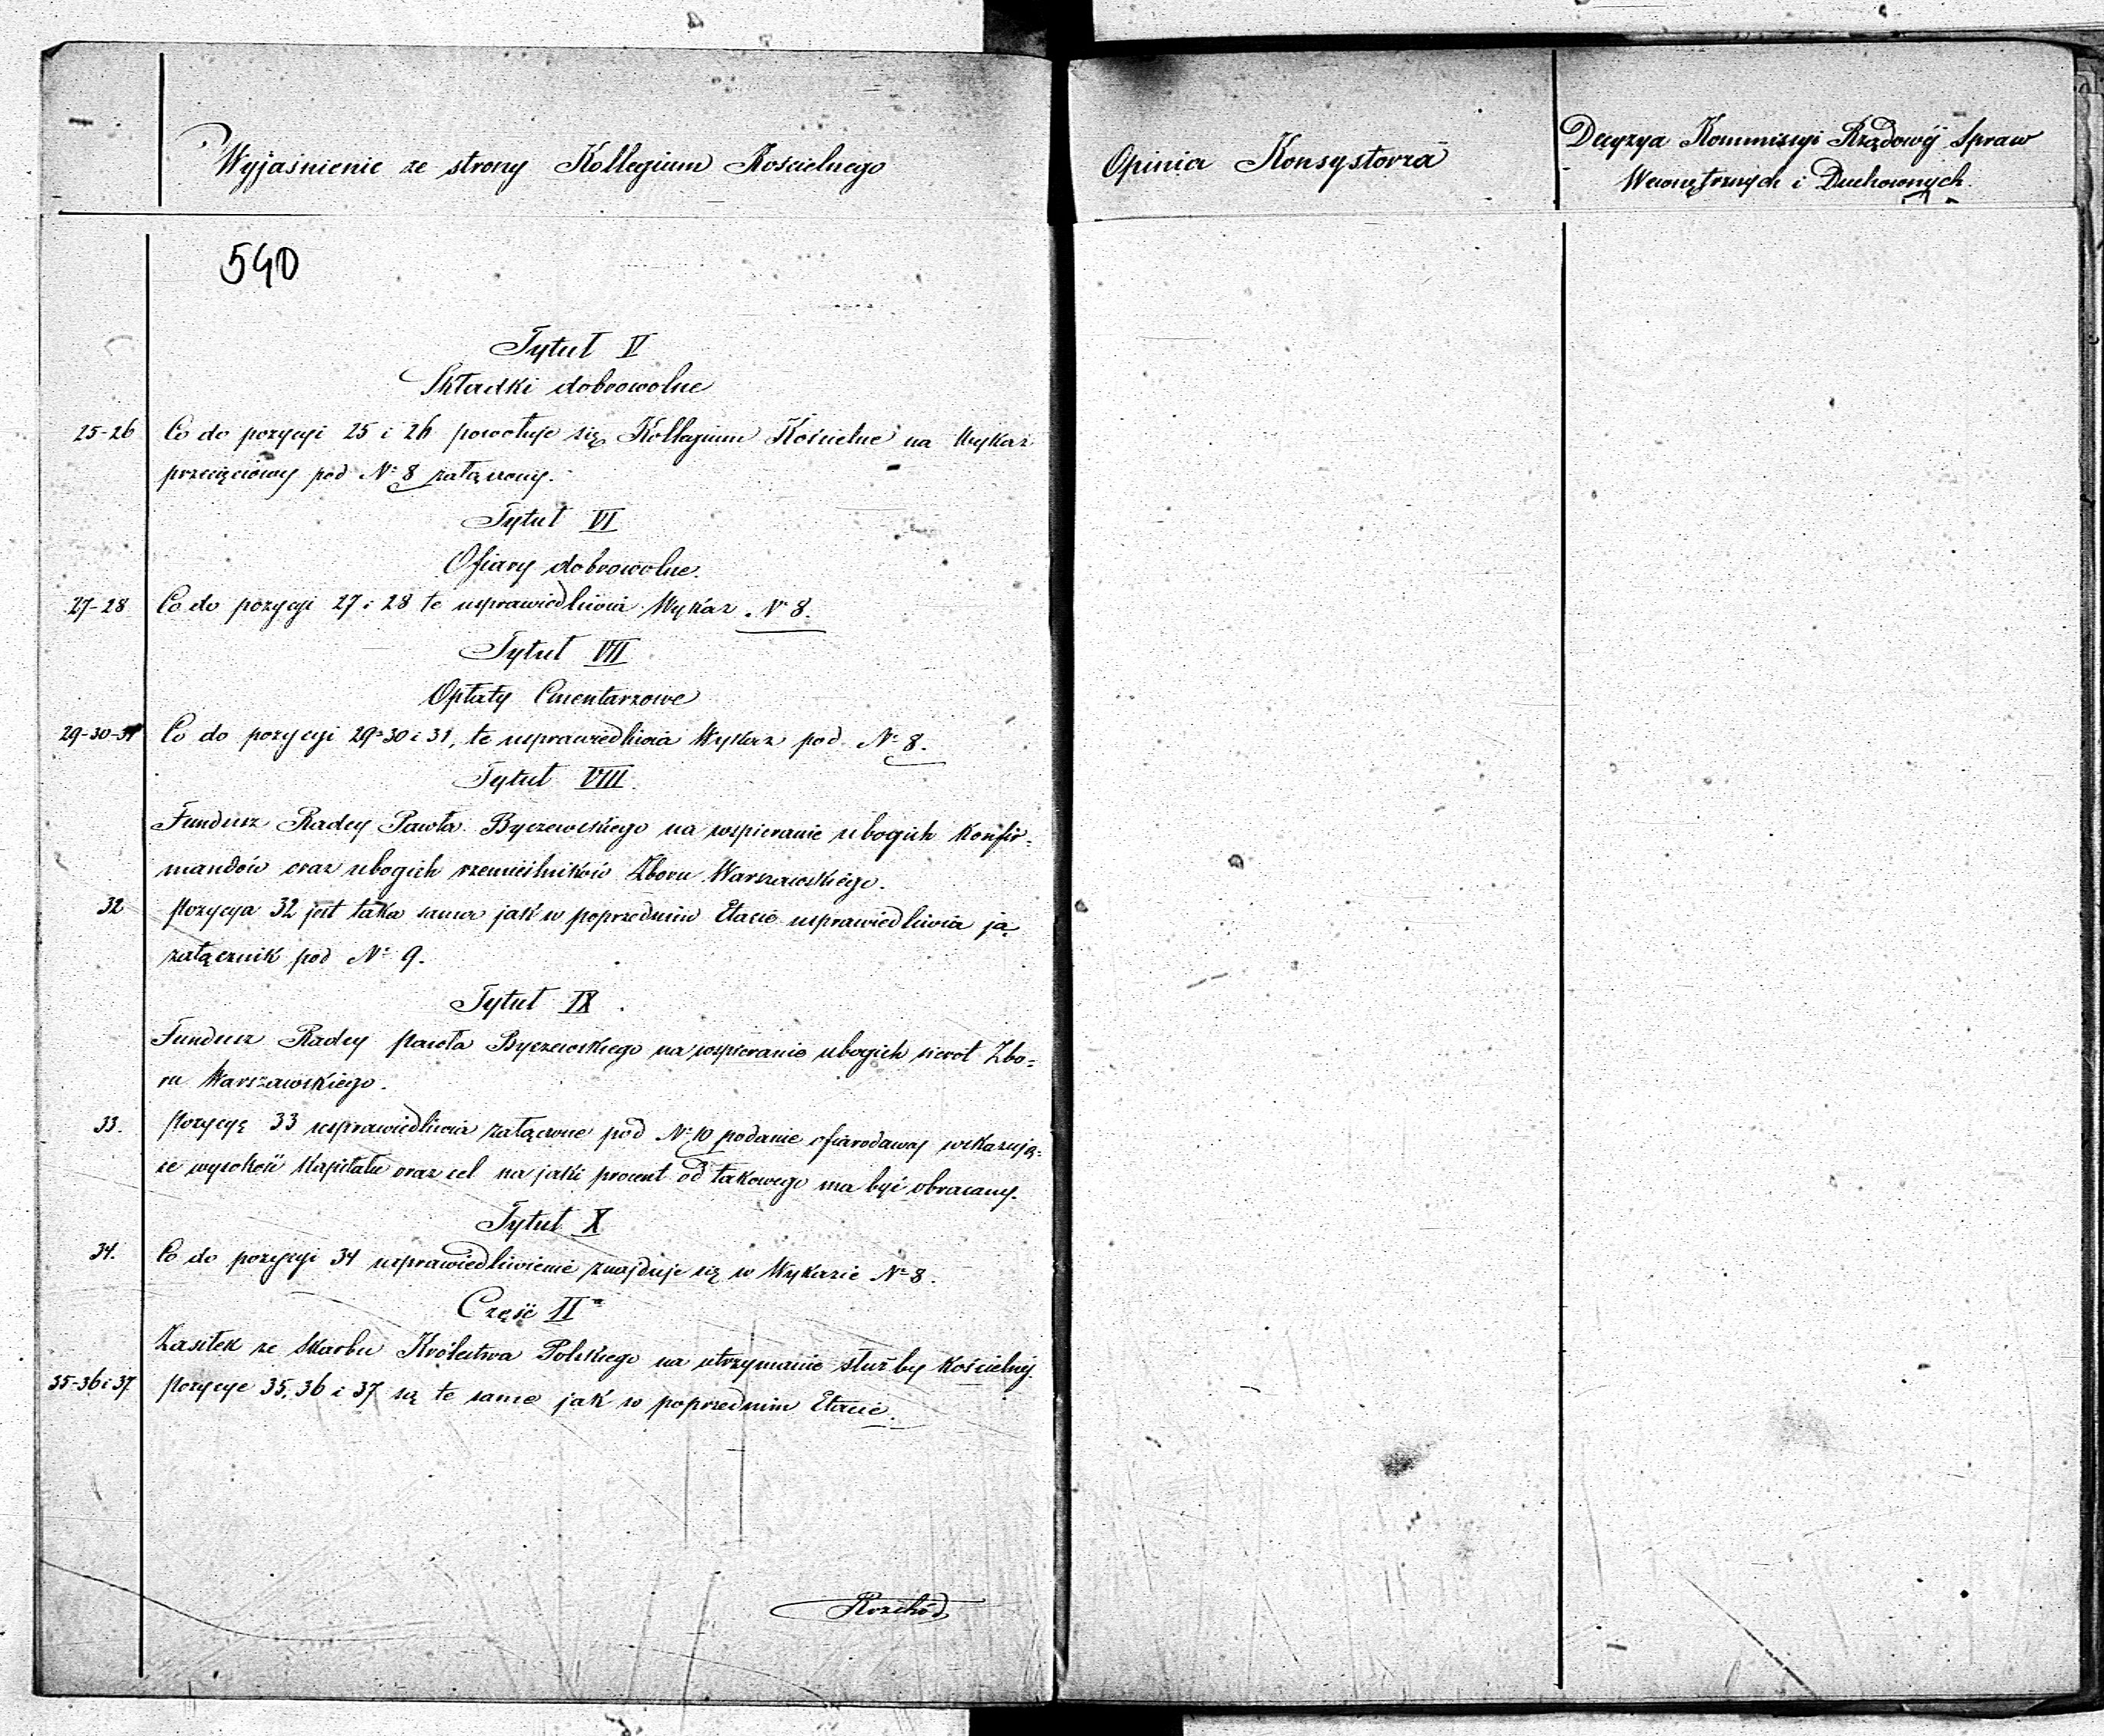 Wyjaśnienie ze strony Kollegium Kościelnego
540
Tytuł V
Składki dobrowolne
25-26 Co do pozycyi 25 i 26 powołuje się Kollegium Kościelne na Wykaz
przecięciowy pod Nº 8 załączony.
Tytuł VI
Ofiary dobrowolne.
27-28 Co do pozycyi 27 i 28 te usprawiedliwia Wykaz Nº 8.
Tytuł VII
Opłaty Cmentarzowe
29-30-31 Co do pozycyi 29-30 i 31, te usprawiedliwia Wykaz pod Nº 8.
Tytuł VIII.
Fundusz Radcy Pawła Byczewskiego na wspieranie ubogich Konfir=
mandów oraz ubogich rzemieślników Zboru Warszawskiego.
32 Pozycya 32 jest taka sama jak w poprzednim Etacie usprawiedliwia ją
załącznik pod Nº 9.
Tytuł IX.
Fundusz Radcy Pawła Byczewskiego na wspieranie ubogich sierot Zbo=
ru Warszawskiego.
33. Pozycyę 33 usprawiedliwia załączone pod Nº 10 podanie ofiarodawcy wskazują=
ce wysokość Kapitału oraz cel na jaki procent od takowego ma być obracany.
Tytuł X
34. Co do pozycyi 34 usprawiedliwienie znajduje się w Wykazie Nº 8.
Część IIa
Zasiłek ze Skarbu Królestwa Polskiego na utrzymanie służby Kościelnej.
35-36 i 37 Pozycye 35, 36 i 37 są te same jak w poprzednim Etacie.
Rozchód
Opinia Konsystorza
Decyzya Kommissyi Rządowéj Spraw
Wewnętrznych i Duchownych.